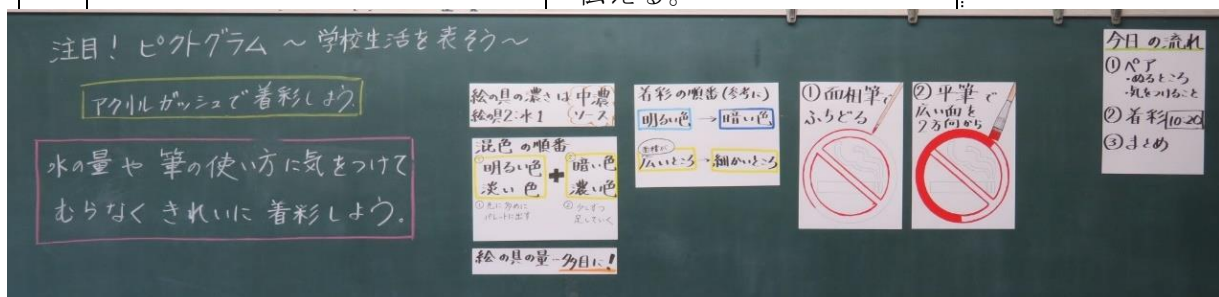 伝える。
注目！ピクトグラム ～学校生活を表そう～
アクリルガッシュで着彩しよう。
水の量や筆の使い方に気をつけて
むらなくきれいに着彩しよう。
絵の具の濃さは中濃
絵の具2:水1 ソース
混色の順番
①明るい色 + ②暗い色
淡い色 濃い色
①先に多めに
パレットに出す
②少しずつ
足していく
絵の具の量→多目に！
着彩の順番(参考に)
明るい色 → 暗い色
広いところ → 細かいところ
①面相筆で
ふちどる
②平筆で
広い面を
1方向から
今日の流れ
①ペア
・ぬるところ
・気をつけること
②着彩 10:20
③まとめ